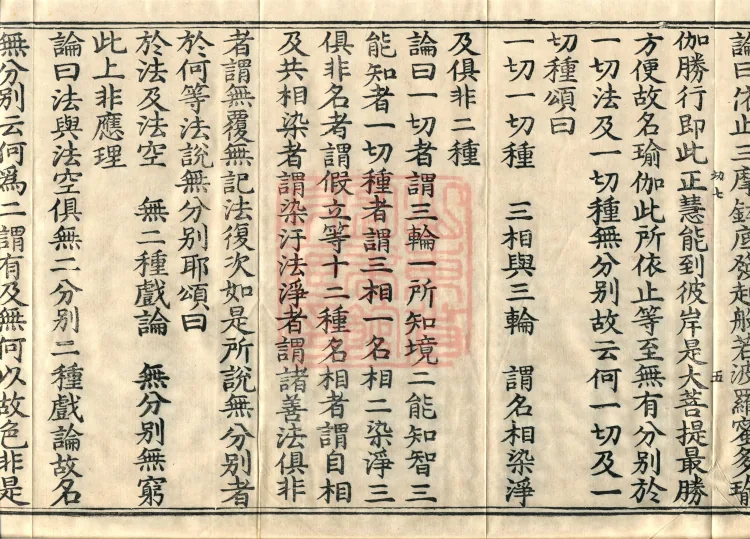 論曰依止三摩鉢底發起般若波羅蜜多瑜
伽勝行即此正慧能到彼岸是大菩提最勝
五
方便故名瑜伽此所依止等至無有分別於
一切法及一切種無分別故云何一切及一
切種頌曰
一切一切種　三相與三輪　謂名相染淨
及俱非二種
論曰一切者謂三輪一所知境二能知智三
能知者一切種者謂三相一名相二染淨三
俱非名者謂假立等十二種名相者謂自相
及共相染者謂染汙法淨者謂諸善法俱非
者謂無覆無記法復次如是所說無分別者
於何等法說無分別耶頌曰
於法及法空　無二種戲論　無分別無窮
此上非應理
論曰法與法空俱無二分別二種戲論故名
無分別云何爲二謂有及無何以故色非是